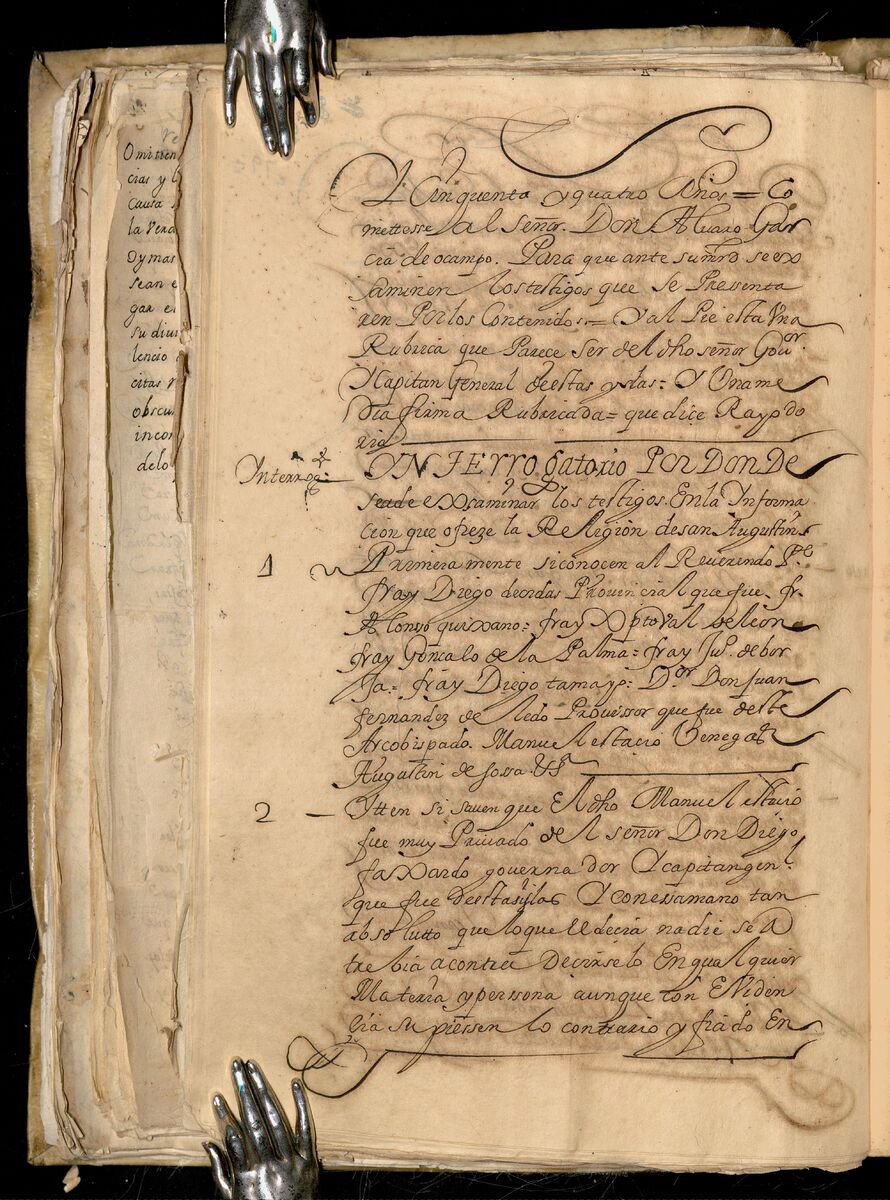 Omitien
cias y l
causa
la Verd
dymas
sean e
gar e
su dium
lencio
citas
obscu
incon
delo
y Cinquenta y quatro Años = Co
mettesse al señor. Don Alvaro Gar
cia de ocampo. Para que ante sumrd se ex
saminen los testigos que se Presenta
ren Por los Contenidos = Y al Pie esta Vna
Rubrica que Parece ser del dho señor Gour.
Y Capitan General de estas yslas: Y Vname
dia firma Rubricada = que dice Raypdo
rio
Interrog:
YNTERRogatorio Por DONDE
seade exsaminar los testigos. En la Informa
cion que ofreze la Religion de san Augustin
1
Primera mente si conocen al Reverendo Pe
fray Diego de ordas Prouincial que fue. fr.
Alonso quixano = fray Xptoval de león
fray Gonçalo de la Palma = fray Jun. de bor
Ja = fray Diego tamayo: Dor Don Juan
fernandez de Ledo Prouissor que fue deste
Arcobispado. Manuel estacio Venegas
Augustin de sossa. Vsa
2
Itten si sauen que El dho Manuel estacio
fue muy Priuado del señor Don Diego
faxardo governador Y capitan genl.
que fue de estas yslas Y con essa mano tan
absolutto que lo que el decia nadie se A
trebia a contra decirselo En qual quier
Materia y perssona aunque con Eviden
cia supiessen lo contrario y fiado En